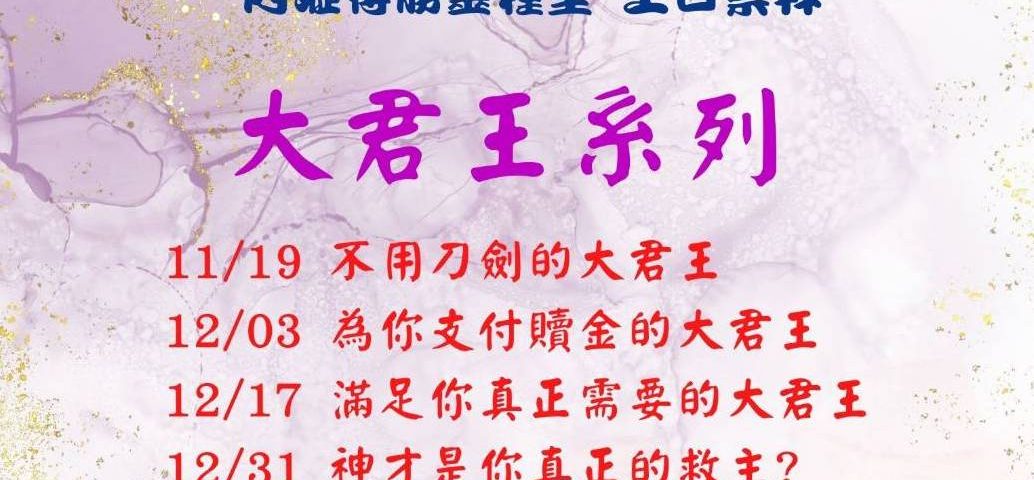 大君王系列
11/19 不用刀劍的大君王
12/03 為你支付贖金的大君王
12/17 滿足你真正需要的大君王
12/31 神才是你真正的救主?